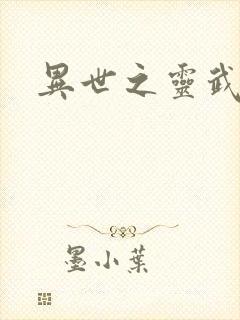 異世之靈武
墨小葉